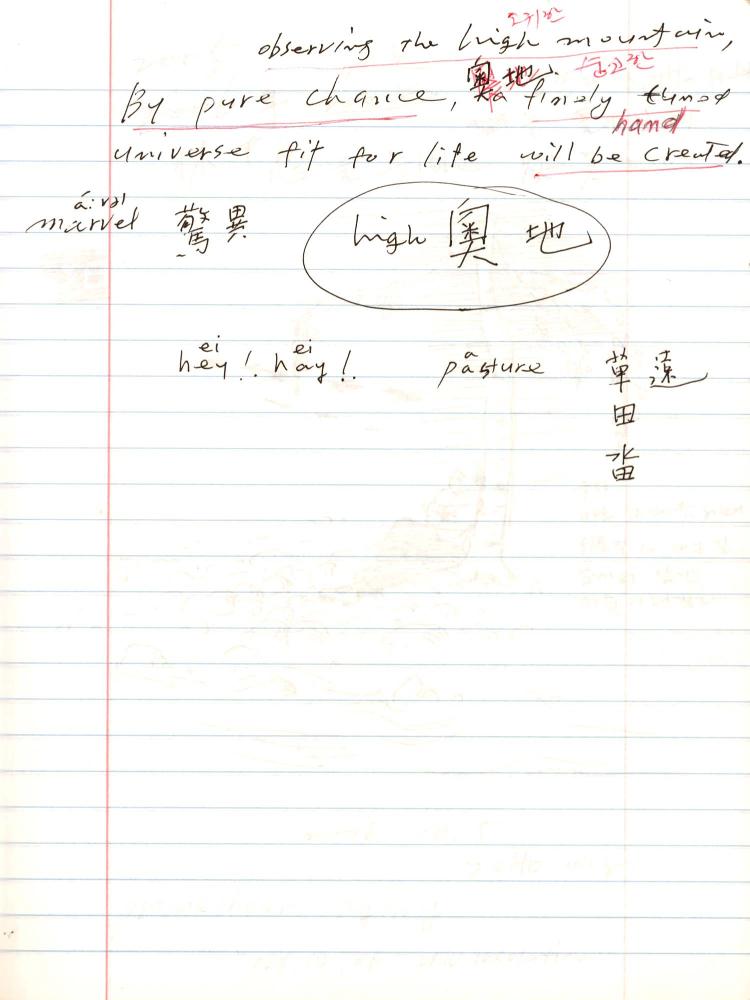 observing the high mountain,
奧地
By pure chance, a finely tuned
hand
universe fit for life will be created.
á:rvl
marvel 驚異 high 奧地
ei ei
hey! hay! pasture 草
田
畓